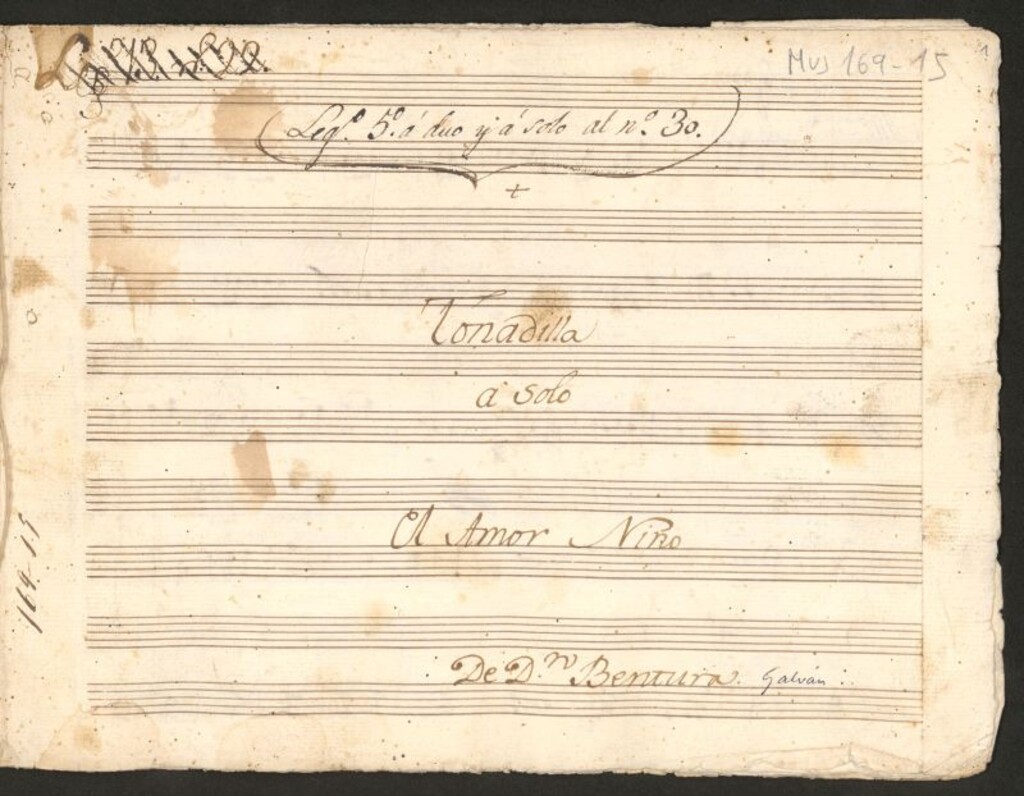 Mus 169-15
1
Leg.º 5.º á duo y á solo al n.º 30.
Tonadilla
a solo
El Amor Niño
De D.n Bentura. Galván..
169-15